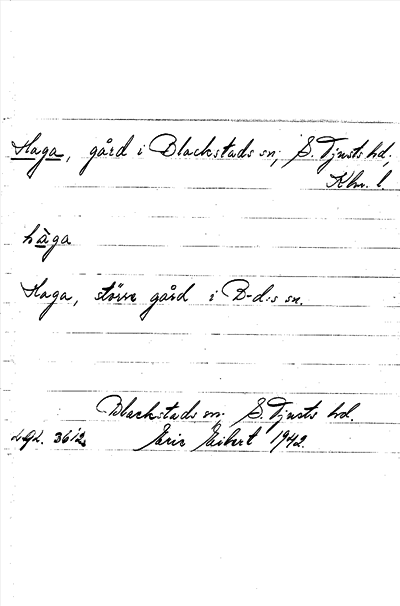 Haga, gård i Blackstads sn, S. Tjusts hd,
Klm. l.
hàga
Haga, större gård i B-d:s sn.
Blackstads sn. S. Tjusts hd.
Eric 1942.